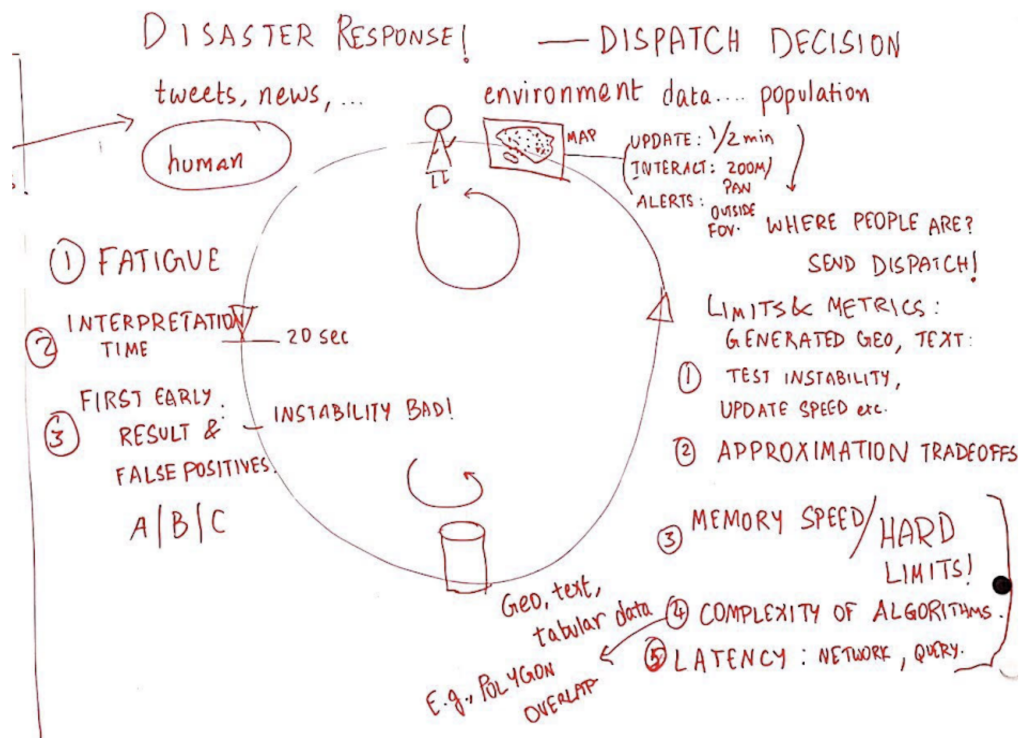 DISASTER RESPONSE! — DISPATCH DECISION
tweets, news, ...
human
environment data.... population
MAP
UPDATE: 1/2 min
INTERACT: ZOOM/
PAN
ALERTS: OUTSIDE
FOV.
WHERE PEOPLE ARE?
SEND DISPATCH!
① FATIGUE
② INTERPRETATION
TIME
20 sec
③ FIRST EARLY:
RESULT &
FALSE POSITIVES.
INSTABILITY BAD!
A|B|C
LIMITS & METRICS:
GENERATED GEO, TEXT:
① TEST INSTABILITY,
UPDATE SPEED etc.
② APPROXIMATION TRADEOFFS
③ MEMORY SPEED/HARD
LIMITS!
④ COMPLEXITY OF ALGORITHMS.
⑤ LATENCY: NETWORK, QUERY.
Geo, text,
tabular data
E.g., POLYGON
OVERLAP